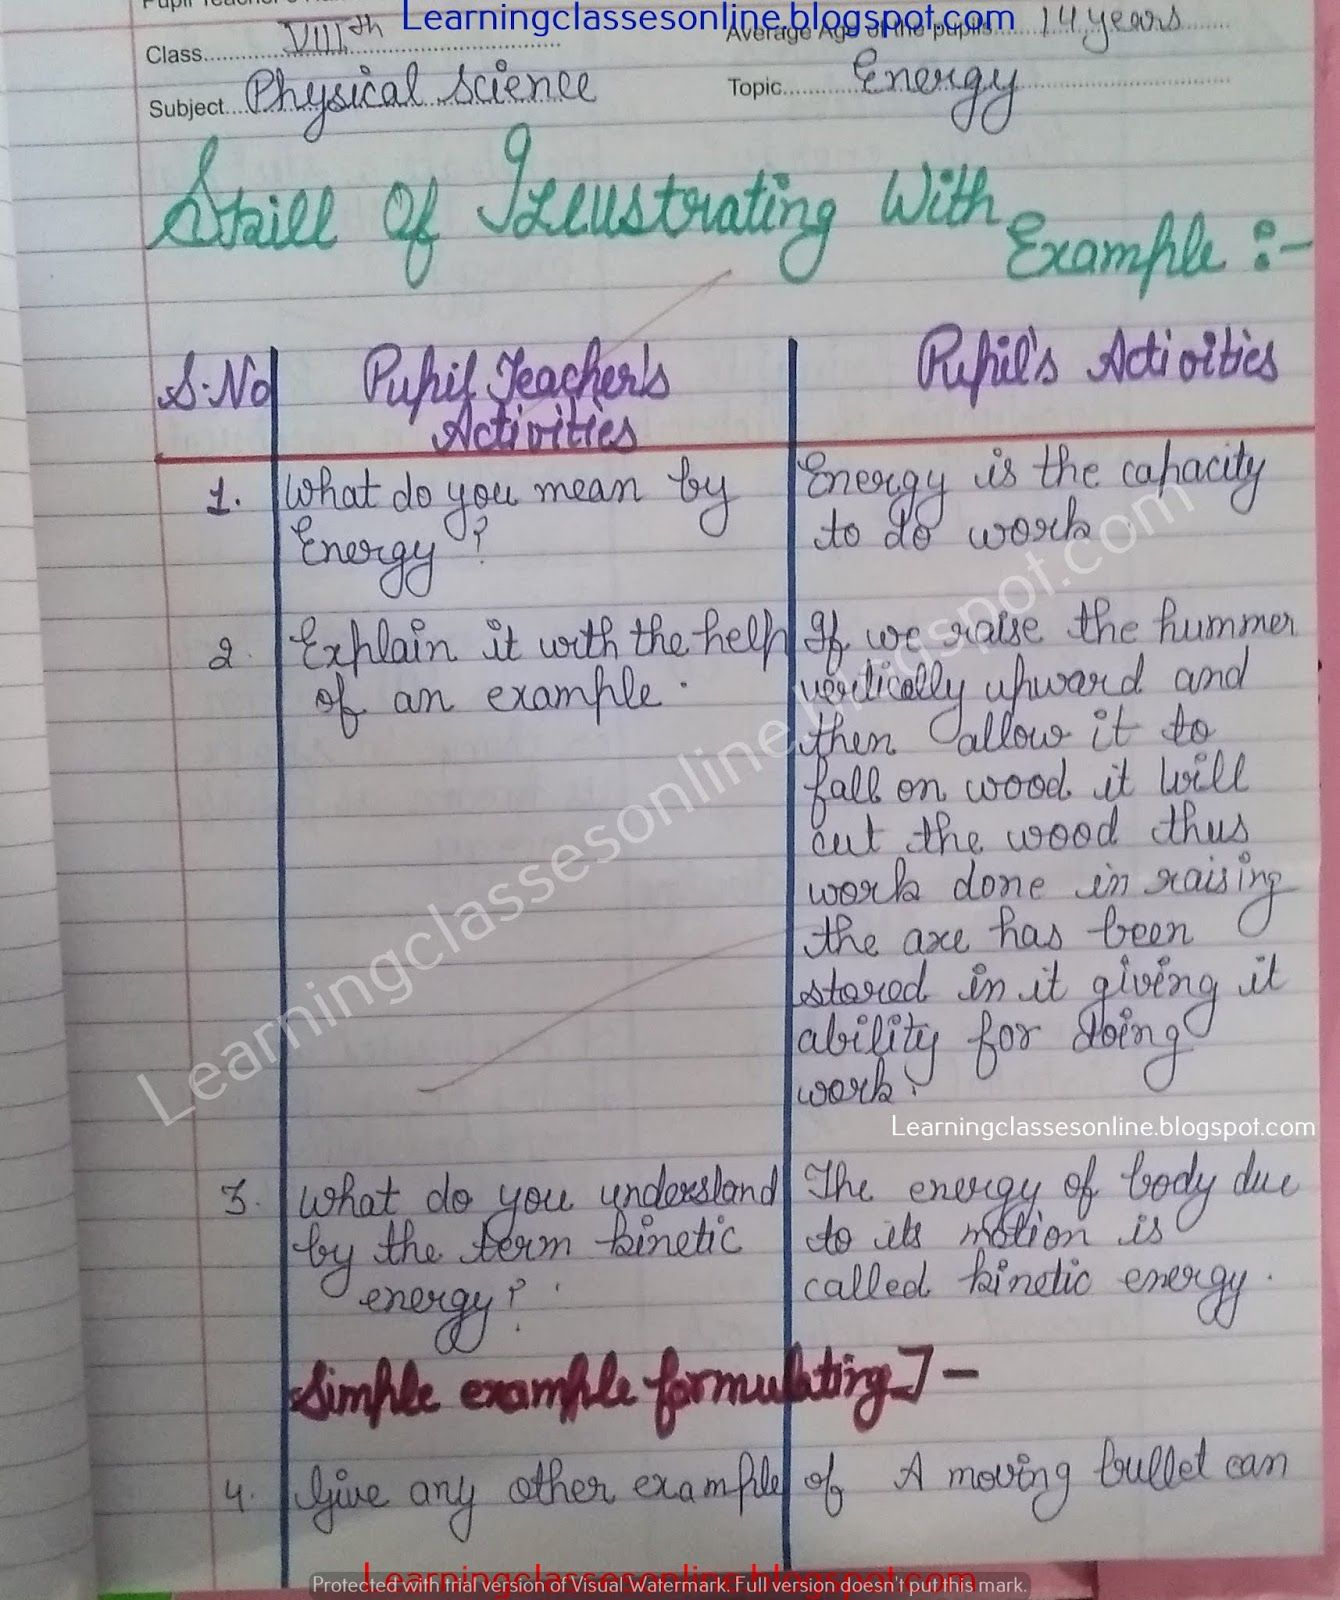 Learningclassesonline.blogspot.com
Class VIIIth Average Age of the pupils 14 years
Subject Physical Science Topic Energy
Skill Of Illustrating With Example :-
S.No Pupil Teacher's Activities Pupil's Activities
1. What do you mean by
Energy?
Energy is the capacity
to do work
2. Explain it with the help
of an example.
If we raise the hummer
vertically upward and
then allow it to
fall on wood it will
cut the wood thus
work done in raising
the axe has been
stored in it giving it
ability for doing
work.
Learningclassesonline.blogspot.com
Learningclassesonline.blogspot.com
3. What do you understand
by the term kinetic
energy?
The energy of body due
to its motion is
called kinetic energy.
Simple example formulating :-
4. Give any other example of A moving bullet can
Learningclassesonline.blogspot.com
Protected with trial version of Visual Watermark. Full version doesn't put this mark.